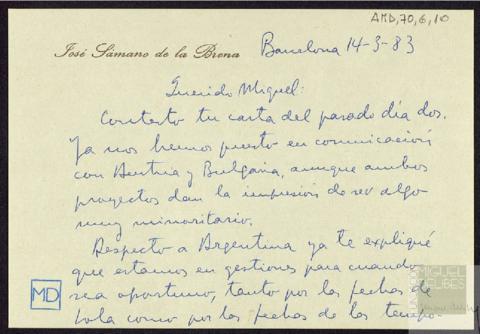 AMD,70,6,10
José Sámano de la Brena
Barcelona 14-3-83
Querido Miguel:
Contesto tu carta del pasado día dos.
Ya nos hemos puesto en comunicación
con Austria y Bulgaria, aunque ambos
proyectos dan la impresión de ser algo
muy minoritario.
Respecto a Argentina ya te expliqué
que estamos en gestiones para cuando
sea oportuno, tanto por las fechas de
Lola como por las fechas de las tempo-
MD
FUNDACIÓN
MIGUEL
DELIBES